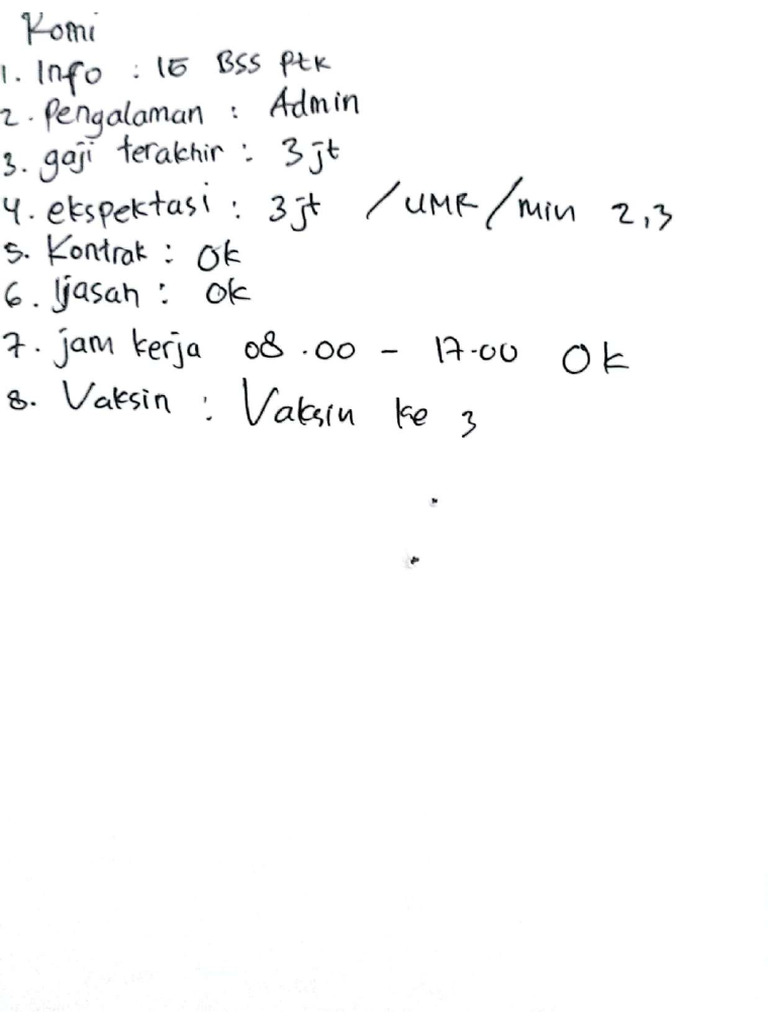 Komi
1. Info : IG BSS Ptk
2. Pengalaman : Admin
3. gaji terakhir : 3 jt
4. ekspektasi : 3 jt / UMR / min 2,3
5. Kontrak : Ok
6. Ijasah : Ok
7. jam kerja 08.00 - 17.00 Ok
8. Vaksin : Vaksin ke 3